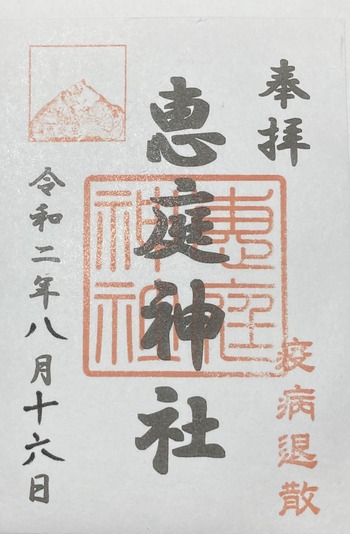 奉拝
恵庭神社
恵庭
神社
疫病退散
令和二年八月十六日